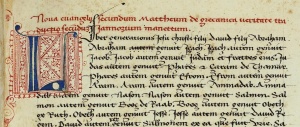 Nova euangelij secundum Mattheum de grecanica ueritate tra
ductio secundum Iannotium manettum.
Liber generationis iesu christi filij Dauid filij Abraham
Abraham autem genuit Isach. Isach autem genuit
Iacob. Iacob autem genuit Iudam et fratres eius.
autem genuit Phares et Zaram de Thamar.
Phares autem genuit Esrom. Esrom autem genuit
Aram. Aram autem genuit Aminadab. Aminad
dab autem genuit Naasson. Naasson autem genuit Salmon. Sal
mon autem genuit Booz de Raab. Booz autem genuit Obeth
Obeth autem genuit Iesse. Iesse autem genuit Dauid
autem Salmonem ex ea que fuit